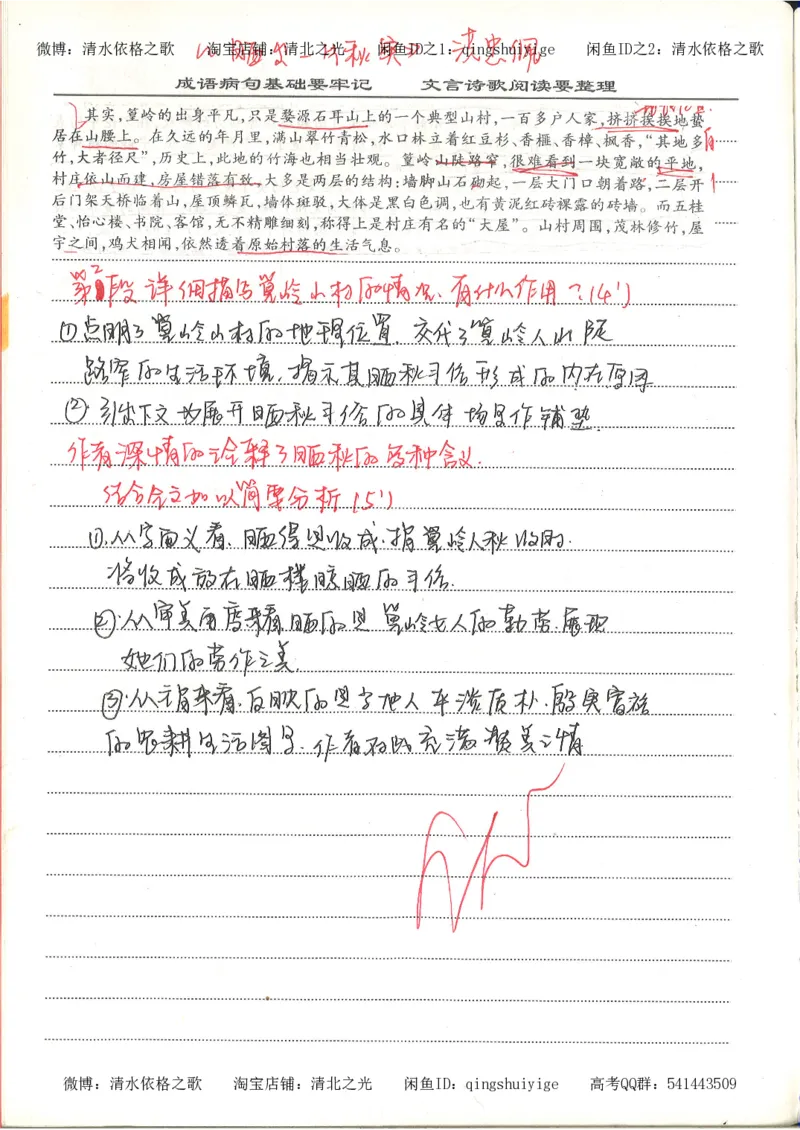 微博：清水依格之歌 淘宝店铺：清北之光 闲鱼ID之1：qingshuiyige 闲鱼ID之2：清水依格之歌
成语病句基础要牢记 文言诗歌阅读要整理
其实，篁岭的出身平凡，只是婺源石耳山上的一个典型山村，一百多户人家，挤挤挨挨地蛰
居在山腰上。在久远的年月里，满山翠竹青松，水口林立着红豆杉、香榧、香樟、枫香，“其地多
竹，大者径尺”，历史上，此地的竹海也相当壮观。篁岭山陡路窄，很难看到一块宽敞的平地，
村庄依山而建，房屋错落有致，大多是两层的结构：墙脚山石砌起，一层大门口朝着路，二层开
后门架天桥临着山，屋顶鳞瓦，墙体斑驳，大体是黑白色调，也有黄泥红砖裸露的砖墙。而五桂
堂、怡心楼、书院、客馆，无不精雕细刻，称得上是村庄有名的“大屋”。山村周围，茂林修竹，屋
宇之间，鸡犬相闻，依然透着原始村落的生活气息。
第2段详细描写篁岭山村的情况，有什么作用？(4')
①点明了篁岭山村的地理位置，交代了篁岭人山陡
路窄的生活环境，揭示其晒秋习俗形成的内在原因
②引出下文为展开晒秋习俗的具体场景作铺垫
作者深情的诠释了晒秋的多种含义.
结合全文加以简要分析(5')
①.从字面义看，晒得是收成，指篁岭人秋收时.
将收成放在晒楼晾晒的习俗.
②.从审美角度来看，晒的是篁岭女人的勤劳，展现
她们的劳作之美.
③.从主旨来看，反映的是当地人丰溢质朴，殷实富裕
的农耕生活图景，作者对此充满赞美之情
微博：清水依格之歌 淘宝店铺：清北之光 闲鱼ID：qingshuiyige 高考QQ群：541443509